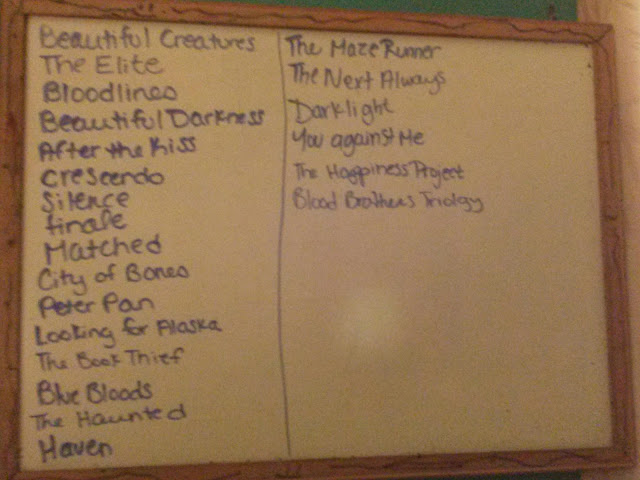 Beautiful Creatures
The Elite
Bloodlines
Beautiful Darkness
After the Kiss
Crescendo
Silence
finale
Matched
City of Bones
Peter Pan
Looking for Alaska
The Book Thief
Blue Bloods
The Haunted
Haven
The Maze Runner
The Next Always
Darklight
You against Me
The Happiness Project
Blood Brothers Triolgy